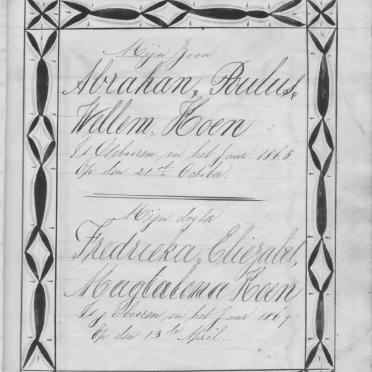 Mijn Zoon
Abrahan, Poulus,
Willem, Koen
Is Gebooren in het Jaar 1865
Op den 21st October.
Mijn dogter
Fredrieka, Eliezabet,
Magtalema Koen
Is Gebooren in het Jaar 1869
Op den 13de April.